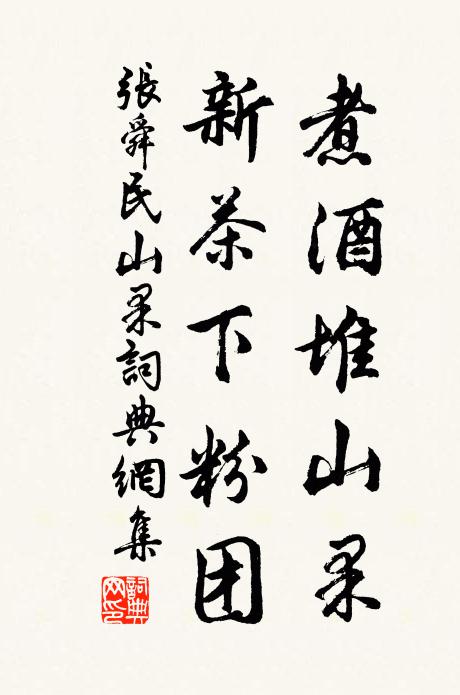 煮酒堆山果
新茶下粉团
張舜民山果詞典網集
詞典网印